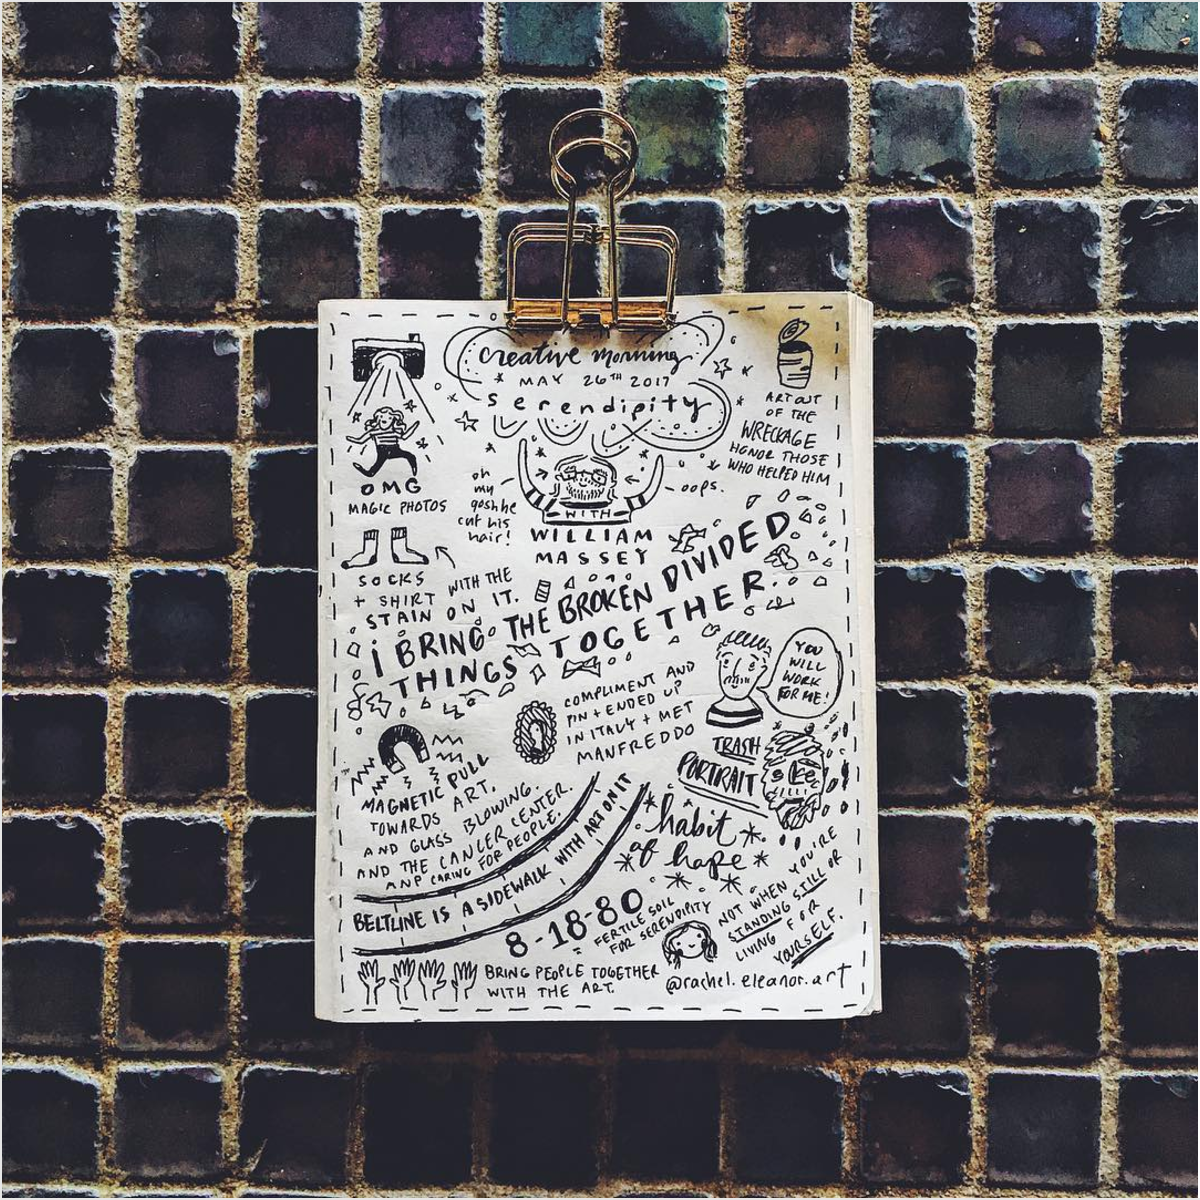 creative morning
MAY 26TH 2017
serendipity
OMG
MAGIC PHOTOS
ART OUT
OF THE
WRECKAGE
HONOR THOSE
WHO HELPED HIM
oh
my
gosh he
cut his
hair!
oops.
WITH
WILLIAM
MASSEY
SOCKS
+ SHIRT WITH THE
STAIN ON IT.
i BRING THE BROKEN DIVIDED
THINGS TOGETHER.
COMPLIMENT AND
PIN + ENDED UP
IN ITALY + MET
MANFREDDO
YOU
WILL
WORK
FOR ME!
TRASH
PORTRAIT
MAGNETIC PULL
TOWARDS ART.
AND GLASS BLOWING.
AND THE CANCER CENTER.
AND CARING FOR PEOPLE.
BELTLINE IS A SIDEWALK WITH ART ON IT
habit
of hope
NOT WHEN YOU'RE
STANDING STILL OR
LIVING FOR
YOURSELF.
8-18-80
FERTILE SOIL
FOR SERENDIPITY
BRING PEOPLE TOGETHER
WITH THE ART.
@rachel.eleanor.art